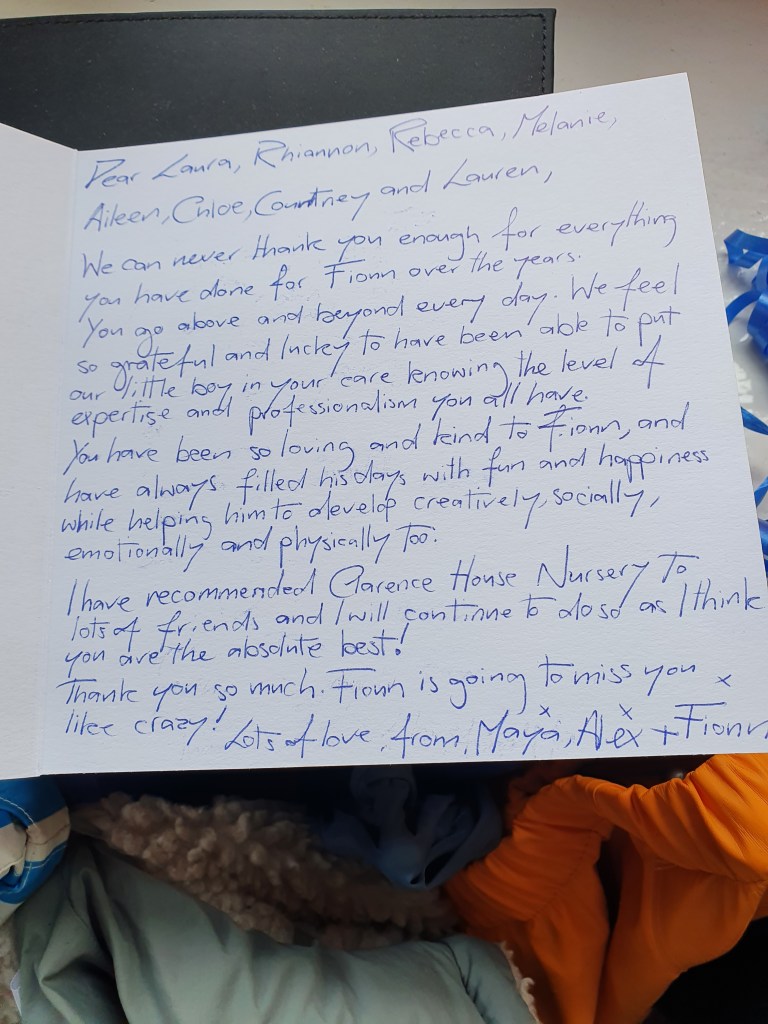 Dear Laura, Rhiannon, Rebecca, Melanie,
Aileen, Chloe, Courtney and Lauren,
We can never thank you enough for everything
you have done for Fionn over the years.
You go above and beyond every day. We feel
so grateful and lucky to have been able to put
our little boy in your care knowing the level of
expertise and professionalism you all have.
You have been so loving and kind to Fionn, and
have always filled his days with fun and happiness
while helping him to develop creatively, socially,
emotionally and physically too.
I have recommended Clarence House Nursery to
lots of friends and I will continue to do so as I think
you are the absolute best!
Thank you so much. Fionn is going to miss you
like crazy! Lots of love, from, Maya, Alex + Fionn
x x x